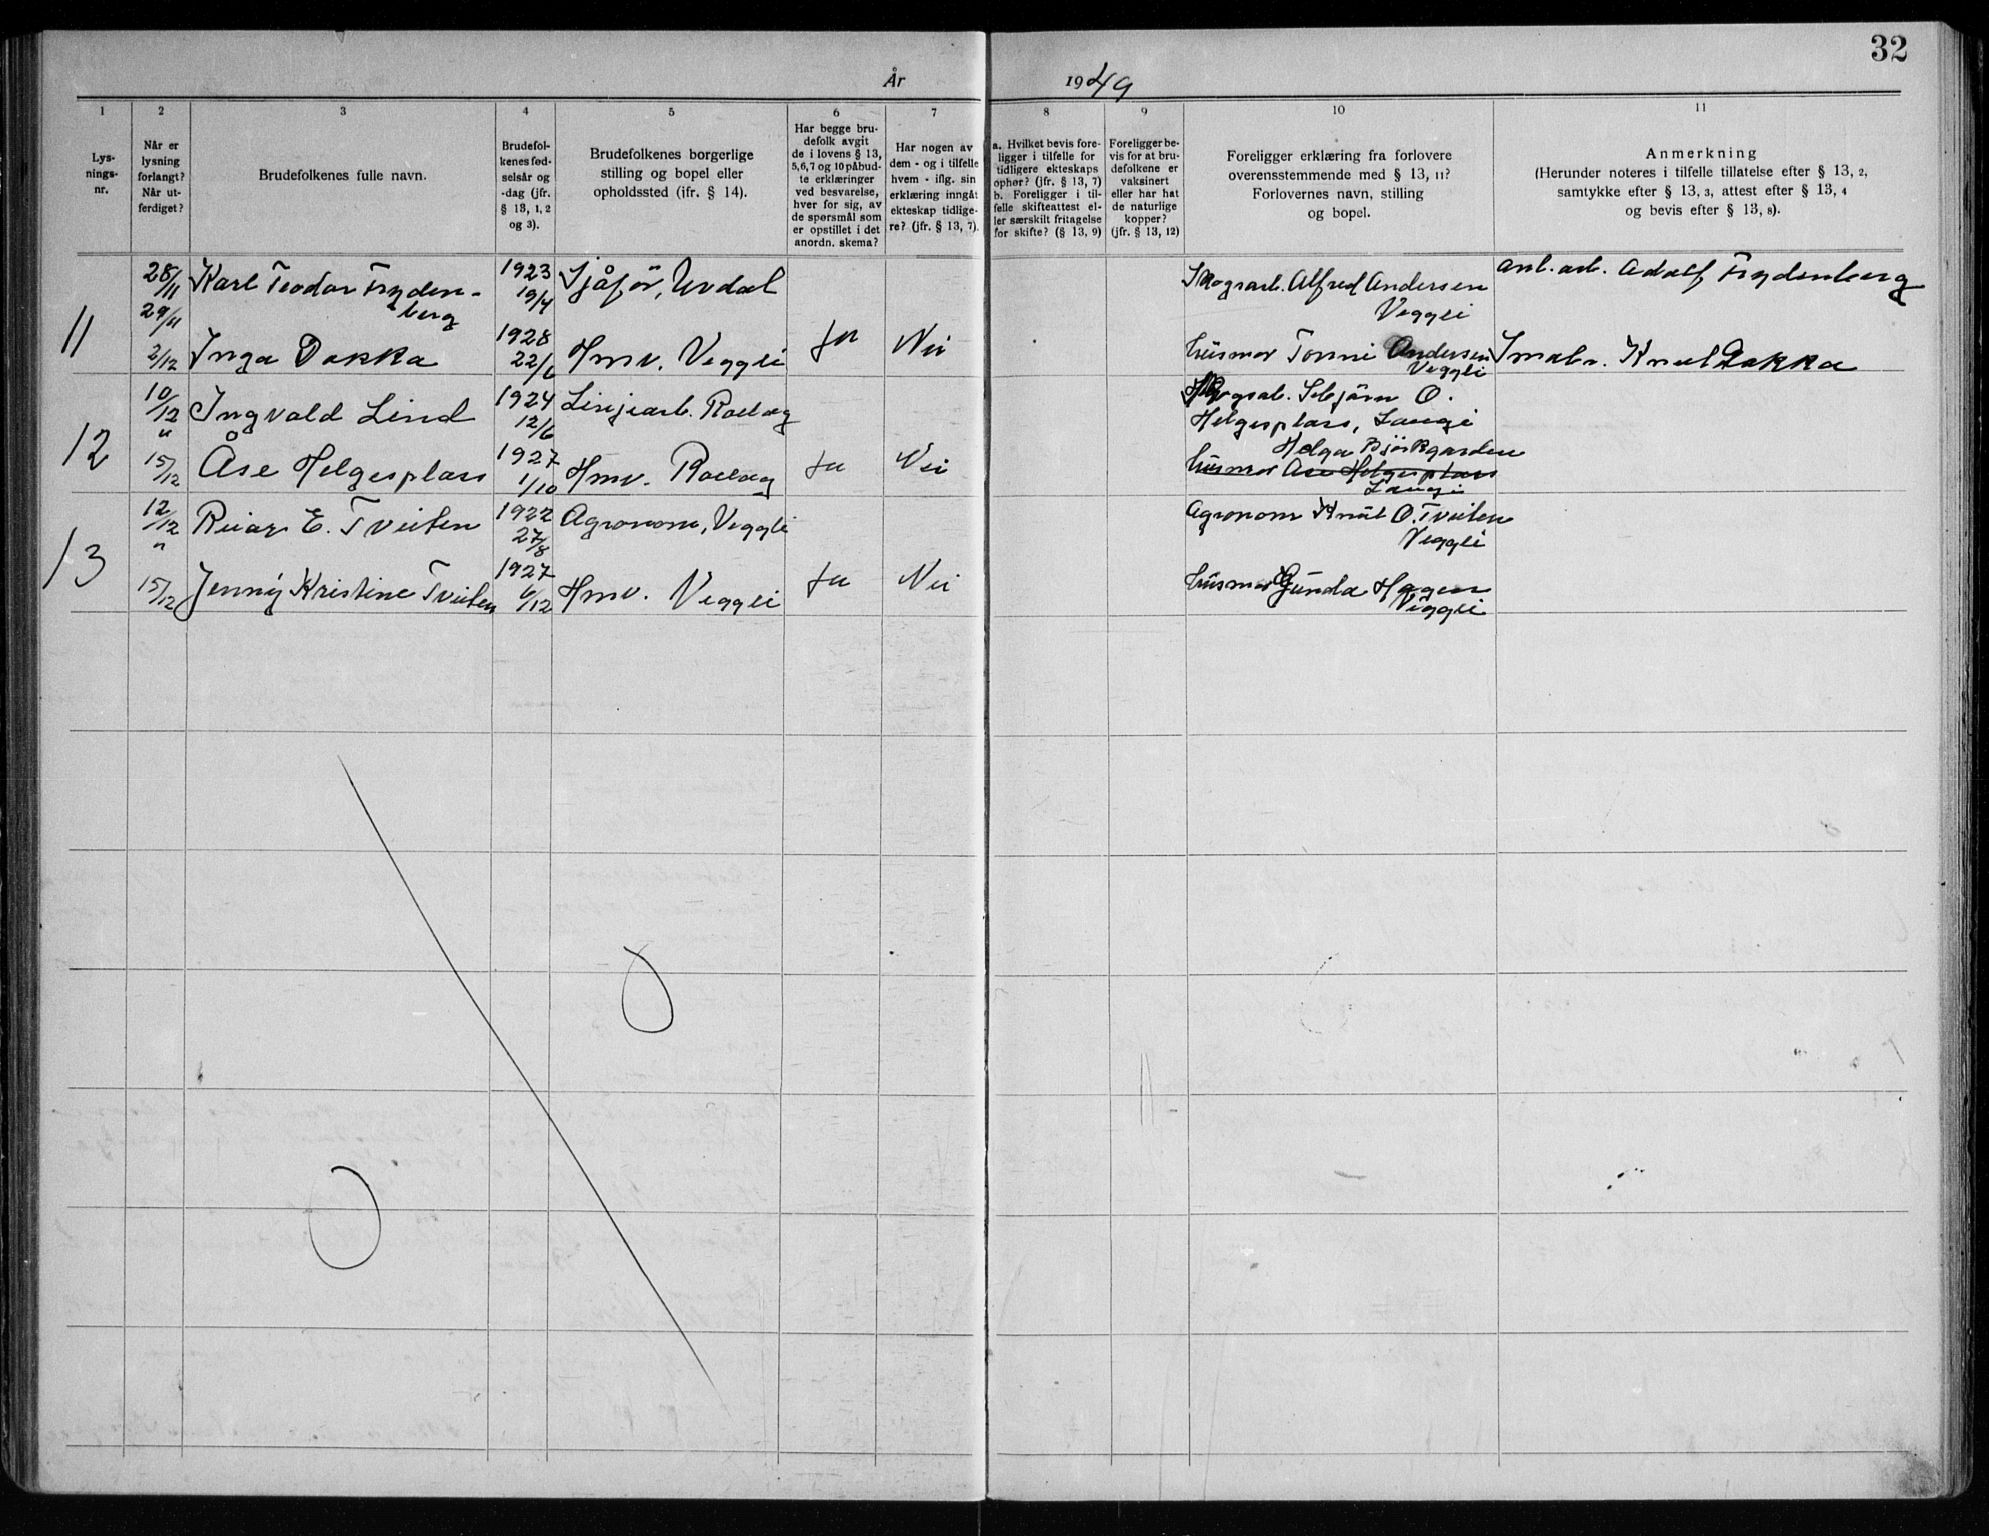 32
År 1949
1
Lys-
nings-
nr.
2
Når er
lysning
forlangt?
Når ut-
ferdiget?
3
Brudefolkenes fulle navn.
4
Brudefol-
kenes fød-
selsår og
-dag (jfr.
§ 13, 1, 2
og 3).
5
Brudefolkenes borgerlige
stilling og bopel eller
opholdssted (ifr. § 14).
6
Har begge bru-
defolk avgit
de i lovens § 13,
5,6,7 og 10 påbud-
te erklæringer
ved besvarelse,
hver for sig, av
de spørsmål som
er opstillet i det
anordn. skema?
7
Har nogen av
dem - og i tilfelle
hvem - iflg. sin
erklæring inngåt
ekteskap tidlige-
re? (jfr. § 13, 7).
8
a. Hvilket bevis fore-
ligger i tilfelle for
tidligere ekteskaps
ophør? (jfr. § 13, 7)
b. Foreligger i til-
felle skifteattest el-
ler særskilt fritagelse
for skifte? (§ 13, 9)
9
Foreligger be-
vis for at bru-
defolkene er
vaksinert
eller har hat
de naturlige
kopper?
(jfr. § 13, 12)
10
Foreligger erklæring fra forlovere
overensstemmende med § 13, 11?
Forlovernes navn, stilling
og bopel.
11
Anmerkning
(Herunder noteres i tilfelle tillatelse efter § 13, 2,
samtykke efter § 13, 3, attest efter § 13, 4
og bevis efter § 13, 8).
11
28/11
29/11
2/12
Karl Teodor Fryden-
berg
1923
19/4
Sjåfør, Uvdal
Skogsarb. Alfred Andersen
Veggli
anl.arb. Adolf Frydenberg
Inga Dokka
1928
22/6
Hmv. Veggli
Ja
Nei
husmor Tonni Andersen
Veggli
Småbr. Knut Dokka
12
10/12
"
15/12
Ingvald Lind
1924
12/6
Linjearb. Rollag
Skogsab. Sebjørn O.
Helgesplass, Laugi
Åse Helgesplass
1927
1/10
Hmv. Rollag
Ja
Nei
Helga Bjørkgarden
husmor Åse Helgesplass
Laugi
13
12/12
"
15/12
Reiar E. Tveiten
1922
27/8
Agronom, Veggli
Agronom Knut O. Tveiten
Veggli
Jenny Kristine Tveiten
1927
6/12
Hmv. Veggli
Ja
Nei
husmor Gunda Hagen
Veggli